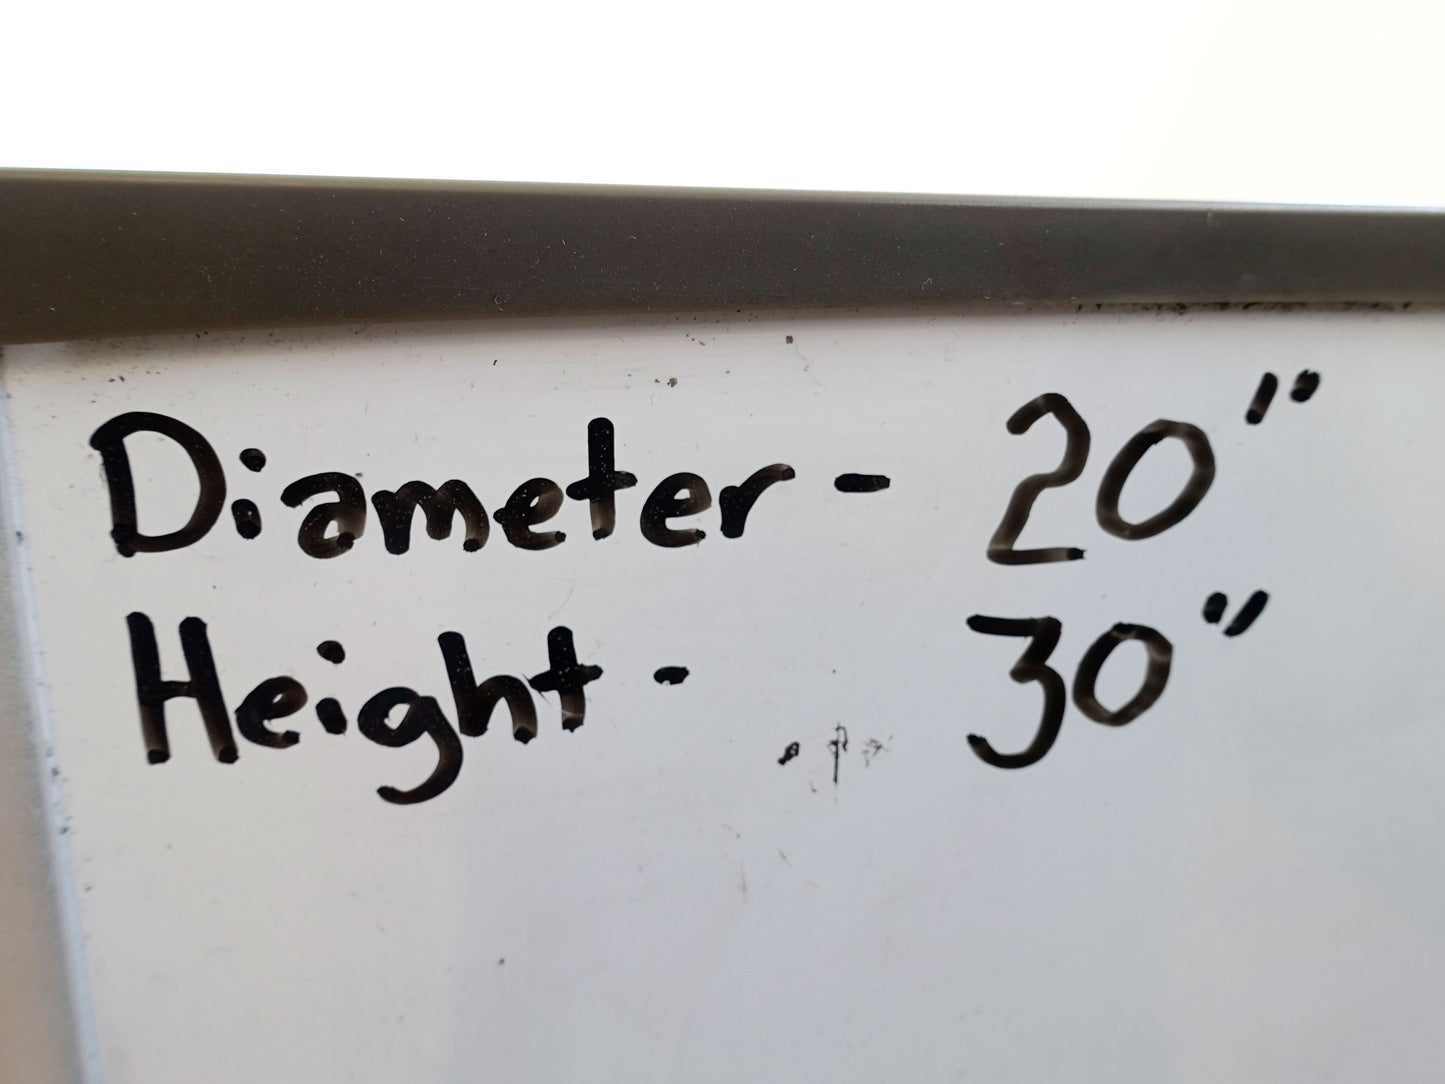 Diameter - 20"
Height - 30"